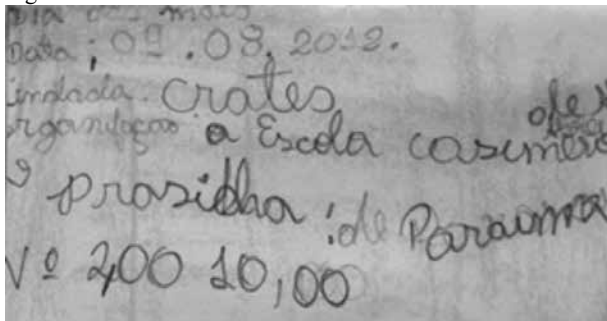 Dia das mães
Data; 09.08.2012.
indada. Crates
organização a Escola casimiro de
prasidha: de Parauma
Nº 200 10,00